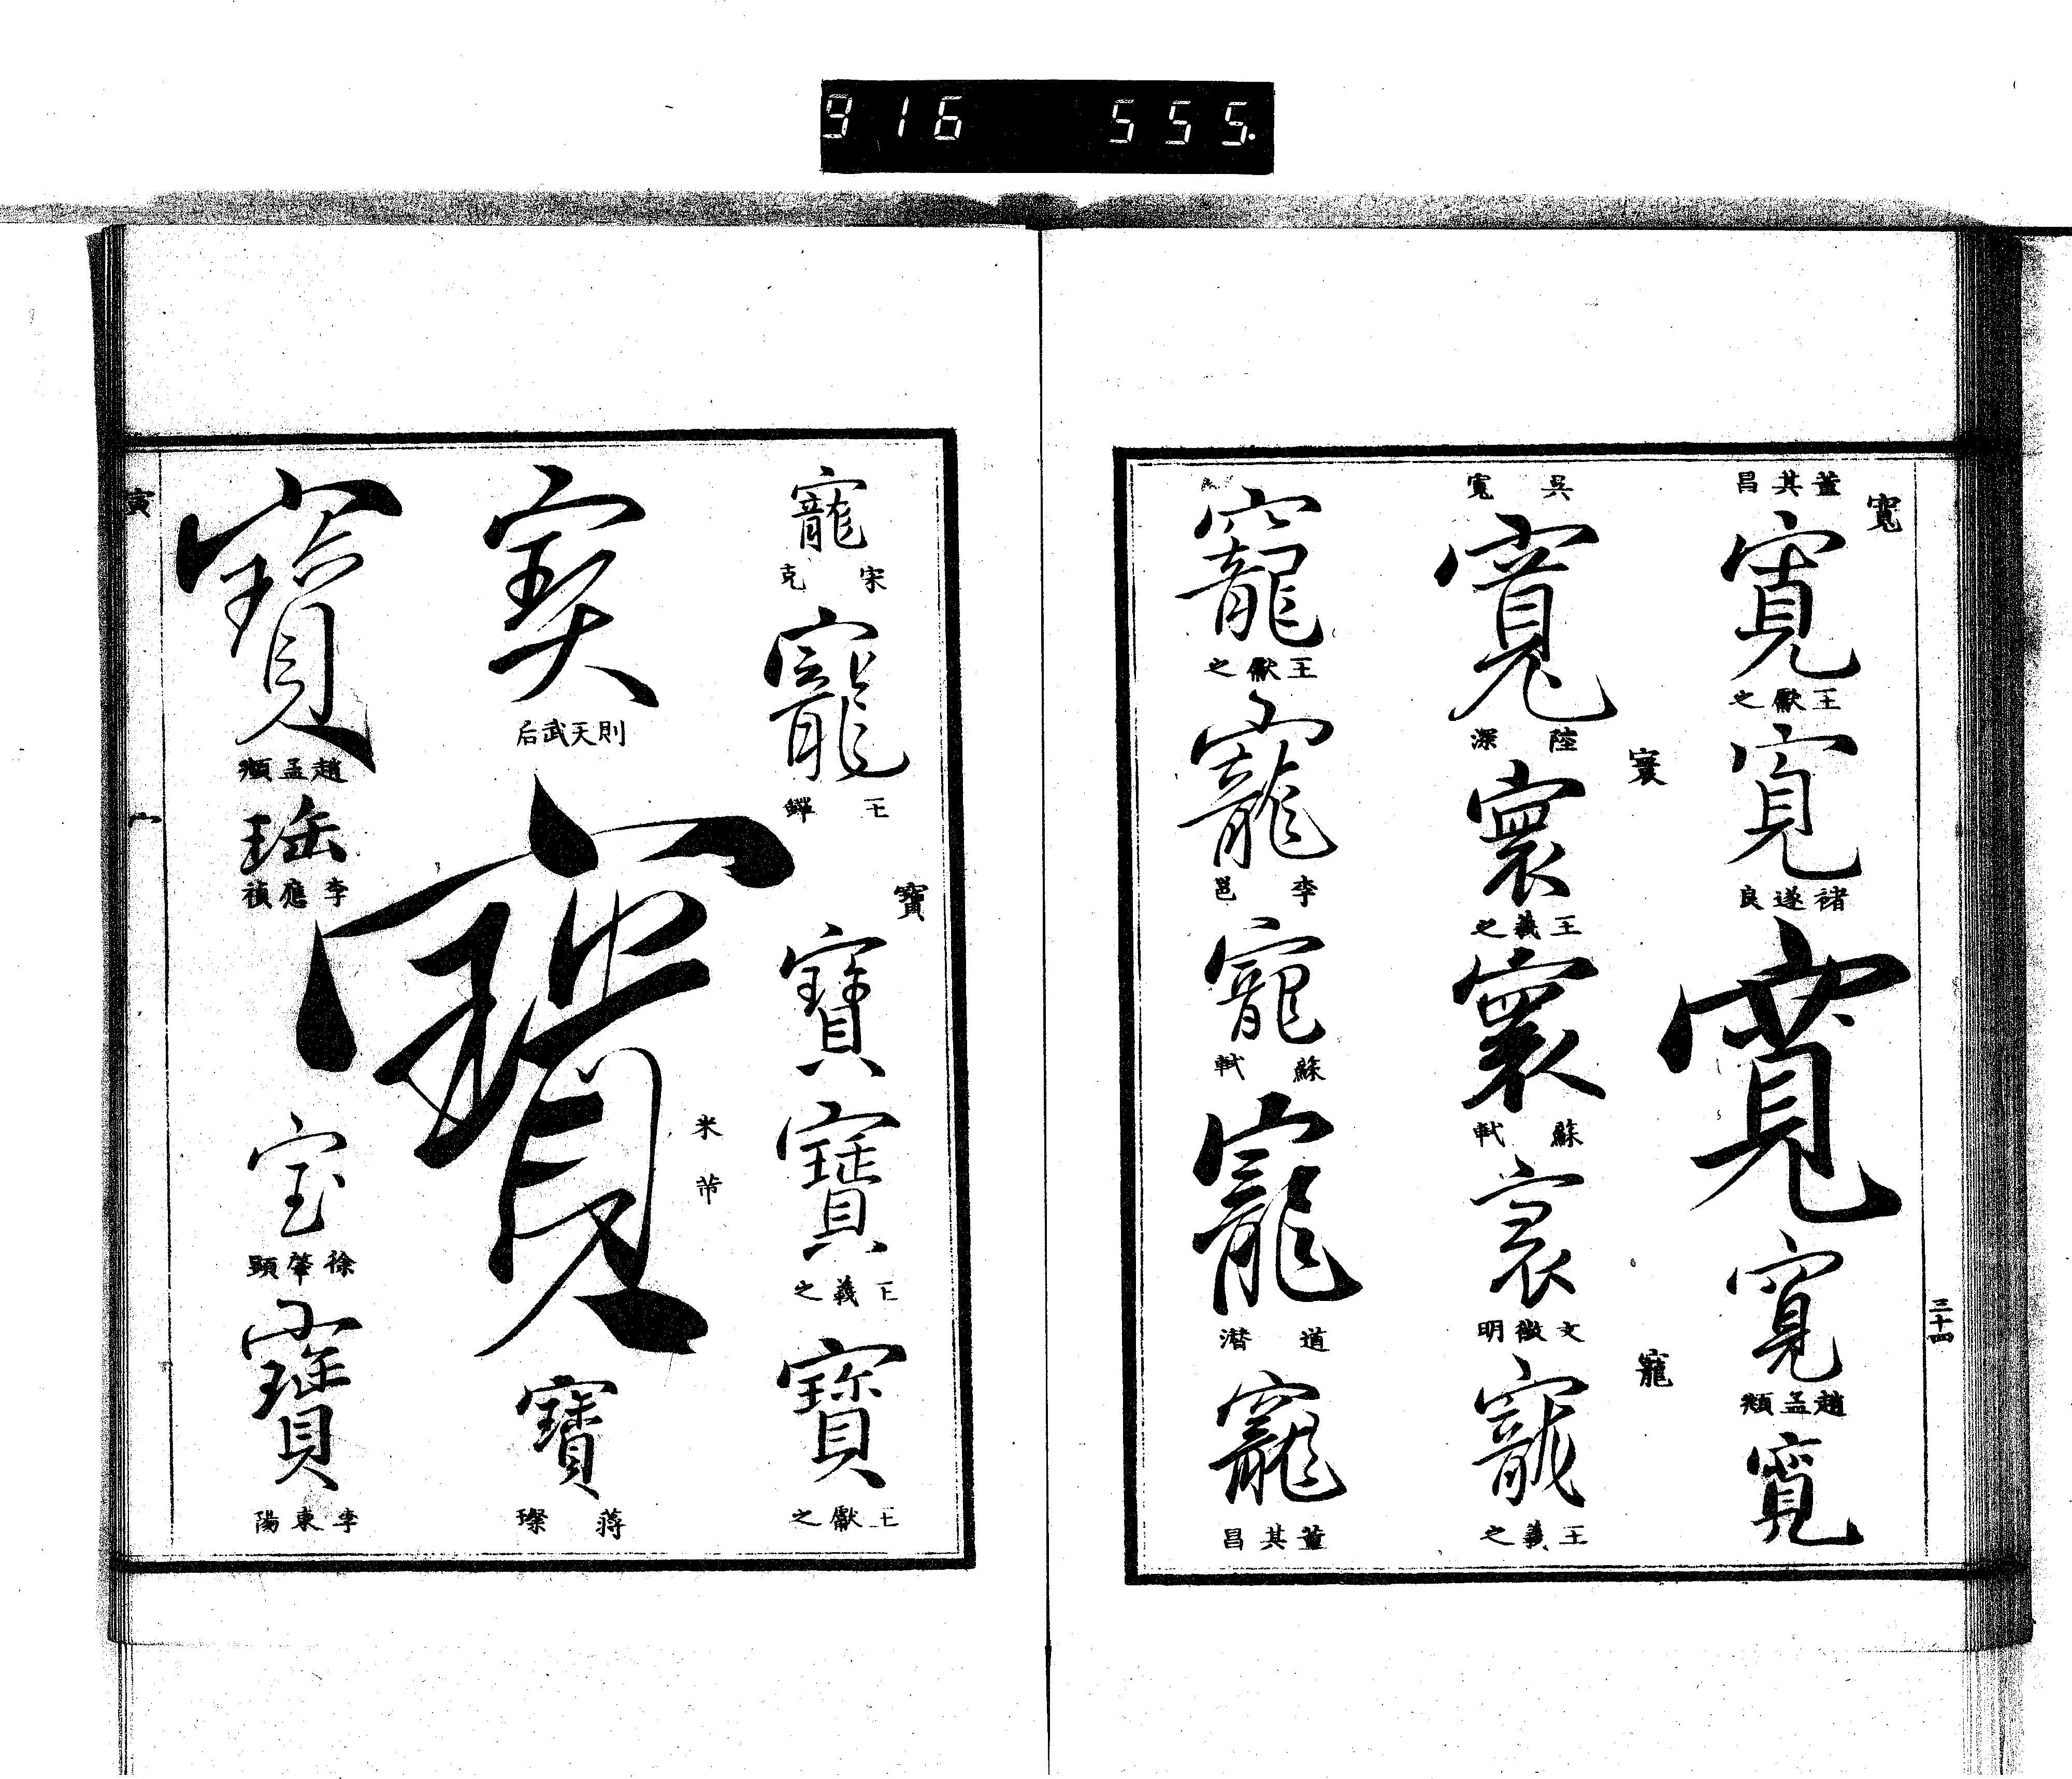 916 555.
寬
董其昌
寬
王獻之
寬
褚遂良
寬
寬
趙孟頫
寬
三十四
吳寬
寬
陸深
寰
寰
王羲之
寰
蘇軾
寰
文徵明
寵
寵
王羲之
寵
王獻之
寵
李邕
寵
蘇軾
寵
道潜
寵
董其昌
寵
宋克
寵
王鐸
寶
寶
寶
王羲之
寶
王獻之
寶
則天武后
寶
米芾
寶
蔣璨
寶
趙孟頫
珤
李應禎
宝
徐肇顯
寶
李東陽
宀